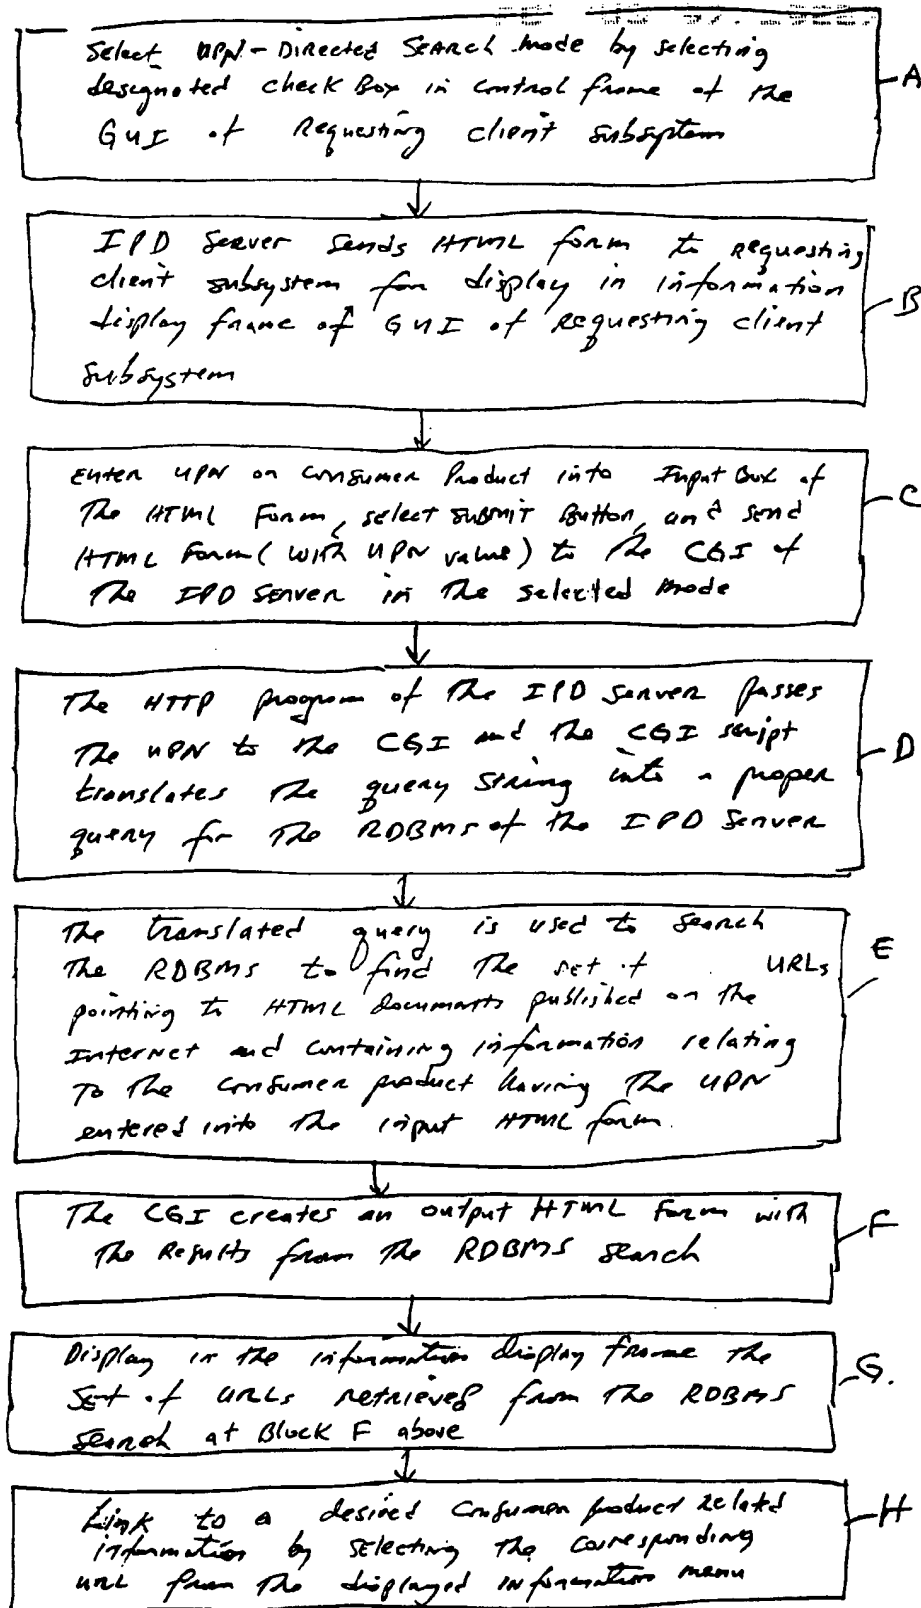 Select UPN-Directed Search mode by selecting
designated check Box in control frame of the
GUI of Requesting client subsystem
A
IPD Server sends HTML form to requesting
client subsystem for display in information
display frame of GUI of requesting client
subsystem
B
Enter UPN on Consumer Product into Input Box of
The HTML Form, select SUBMIT Button, and send
HTML Form (with UPN value) to the CGI of
The IPD Server in the selected mode
C
The HTTP program of the IPD Server passes
The UPN to the CGI and the CGI script
translates the query string into a proper
query for the RDBMS of the IPD Server
D
The translated query is used to search
the RDBMS to find the set of URLs
pointing to HTML documents published on the
Internet and containing information relating
To the consumer product having the UPN
entered into the input HTML form.
E
The CGI creates an output HTML Form with
The Results from the RDBMS search
F
Display in the information display frame the
Set of URLs retrieved from the RDBMS
Search at Block F above
G.
Link to a desired Consumer product Related
information by selecting the corresponding
URL from the displayed information menu
H